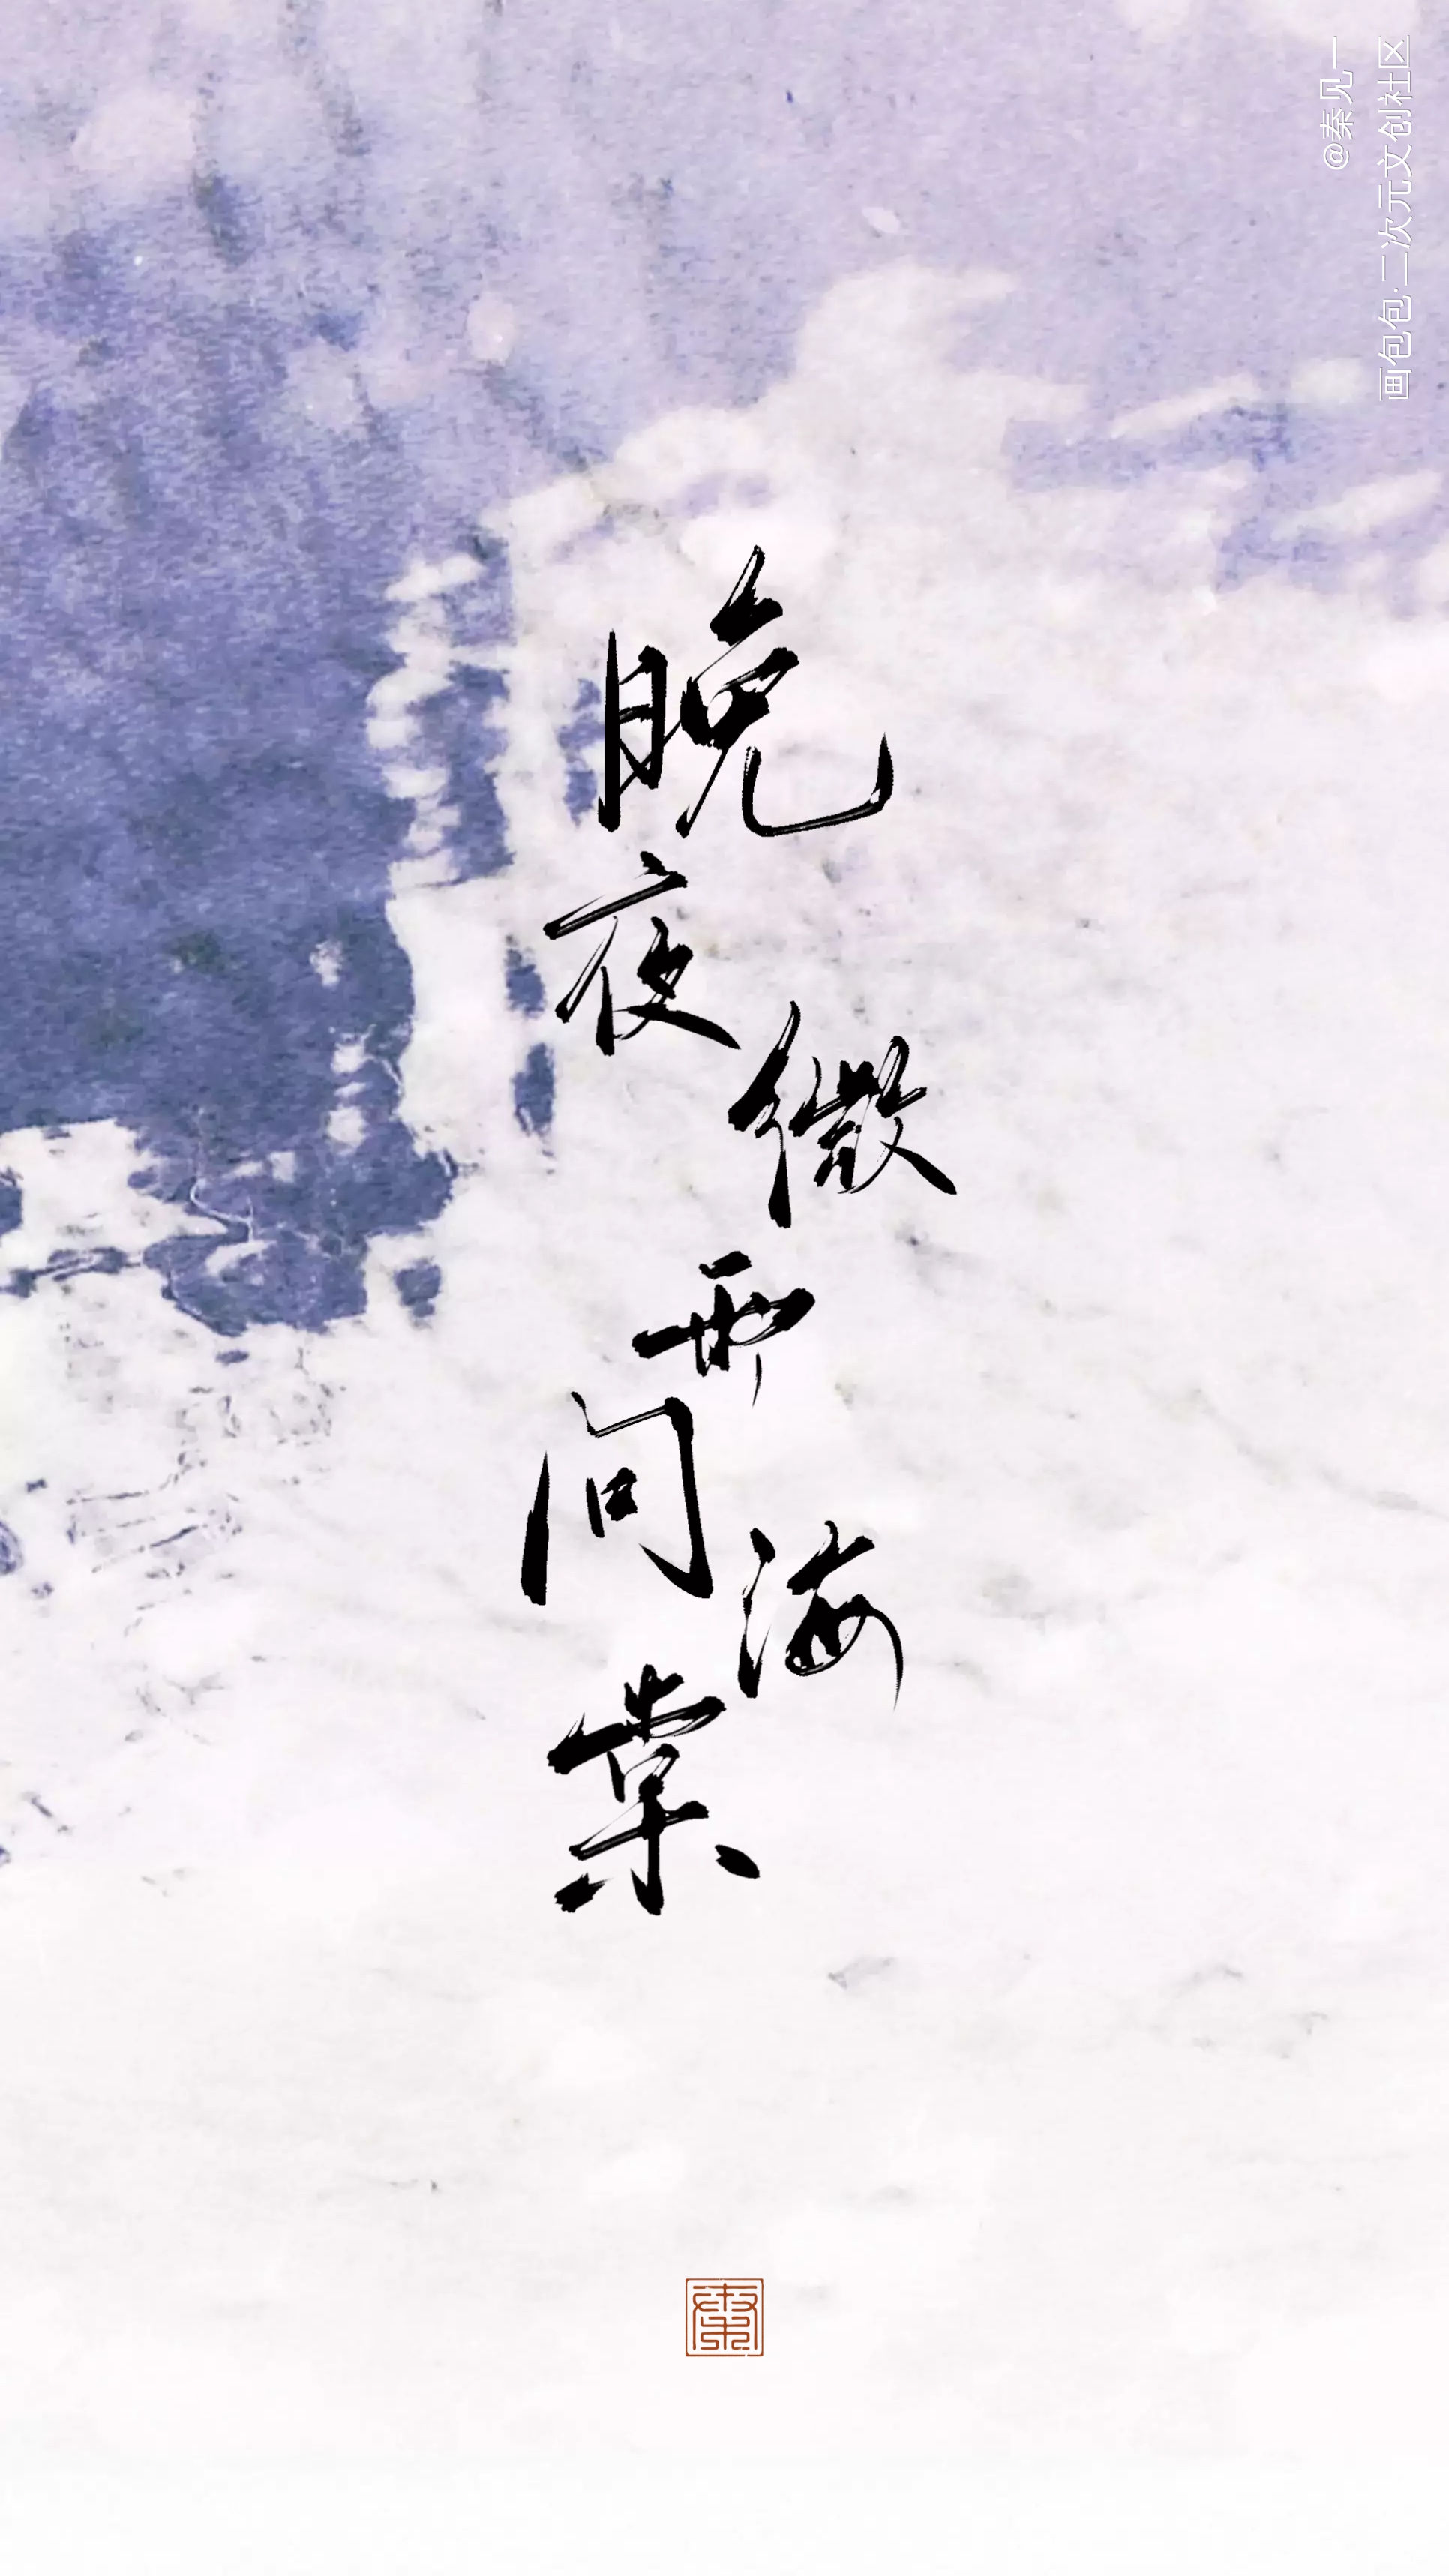 晚夜微雨问海棠
@秦见一
画包包·二次元文创社区
秦